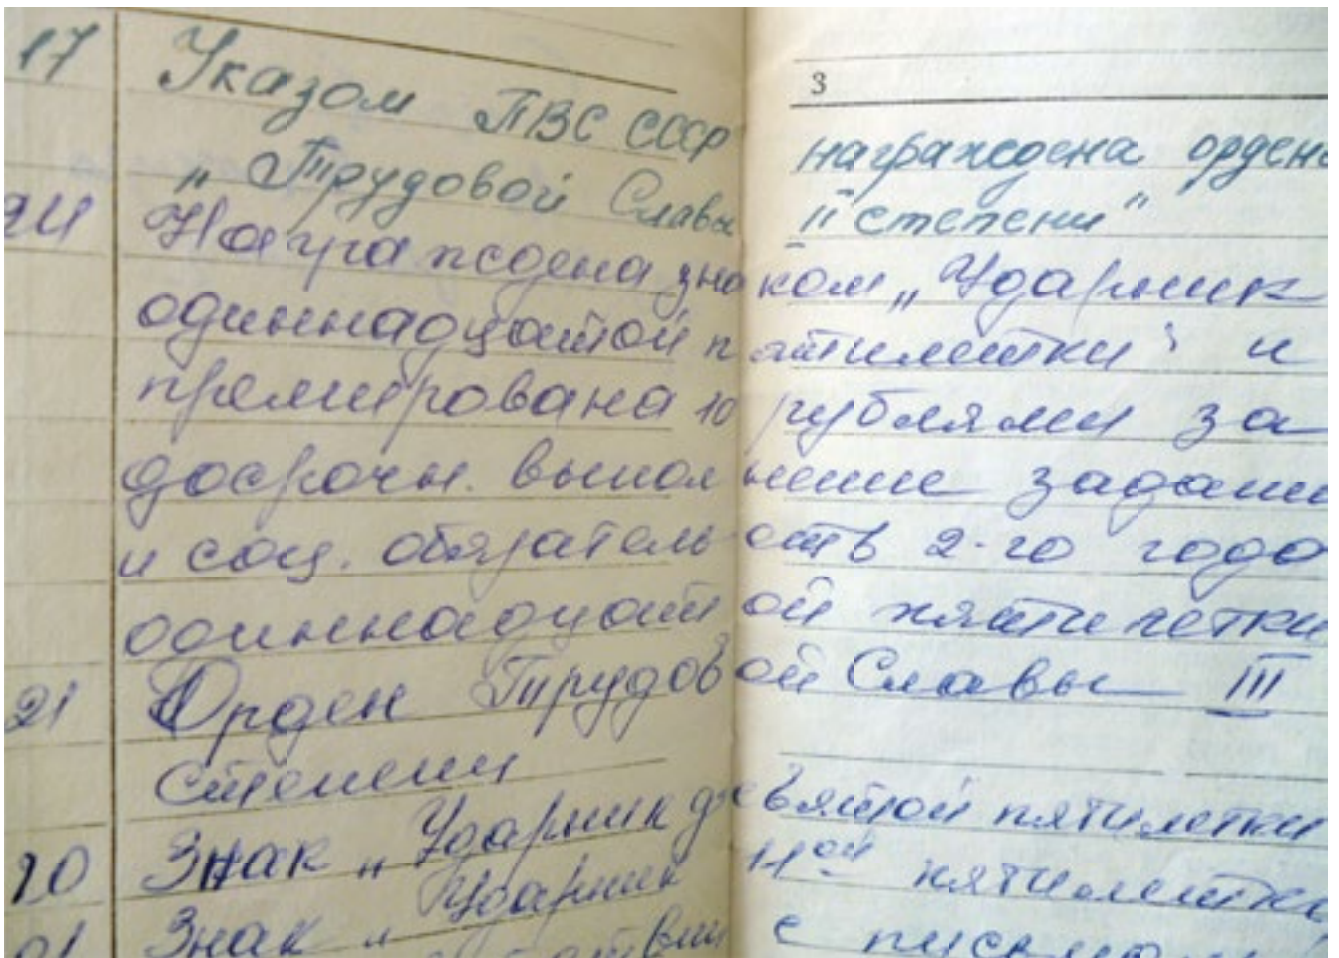 3
17 Указом ПВС СССР награждена ордено
„Трудовой Славы II степени“
24 Награждена знаком „Ударник
одиннадцатой пятилетки“ и
премирована 10 рублями за
досрочн. выполнение задани
и соц. обязательств 2-го года
одиннадцатой пятилетки
21 Орден Трудовой Славы III
степени
20 Знак „Ударник девятой пятилетки
21 Знак „Ударник 11ой пятилетки
с